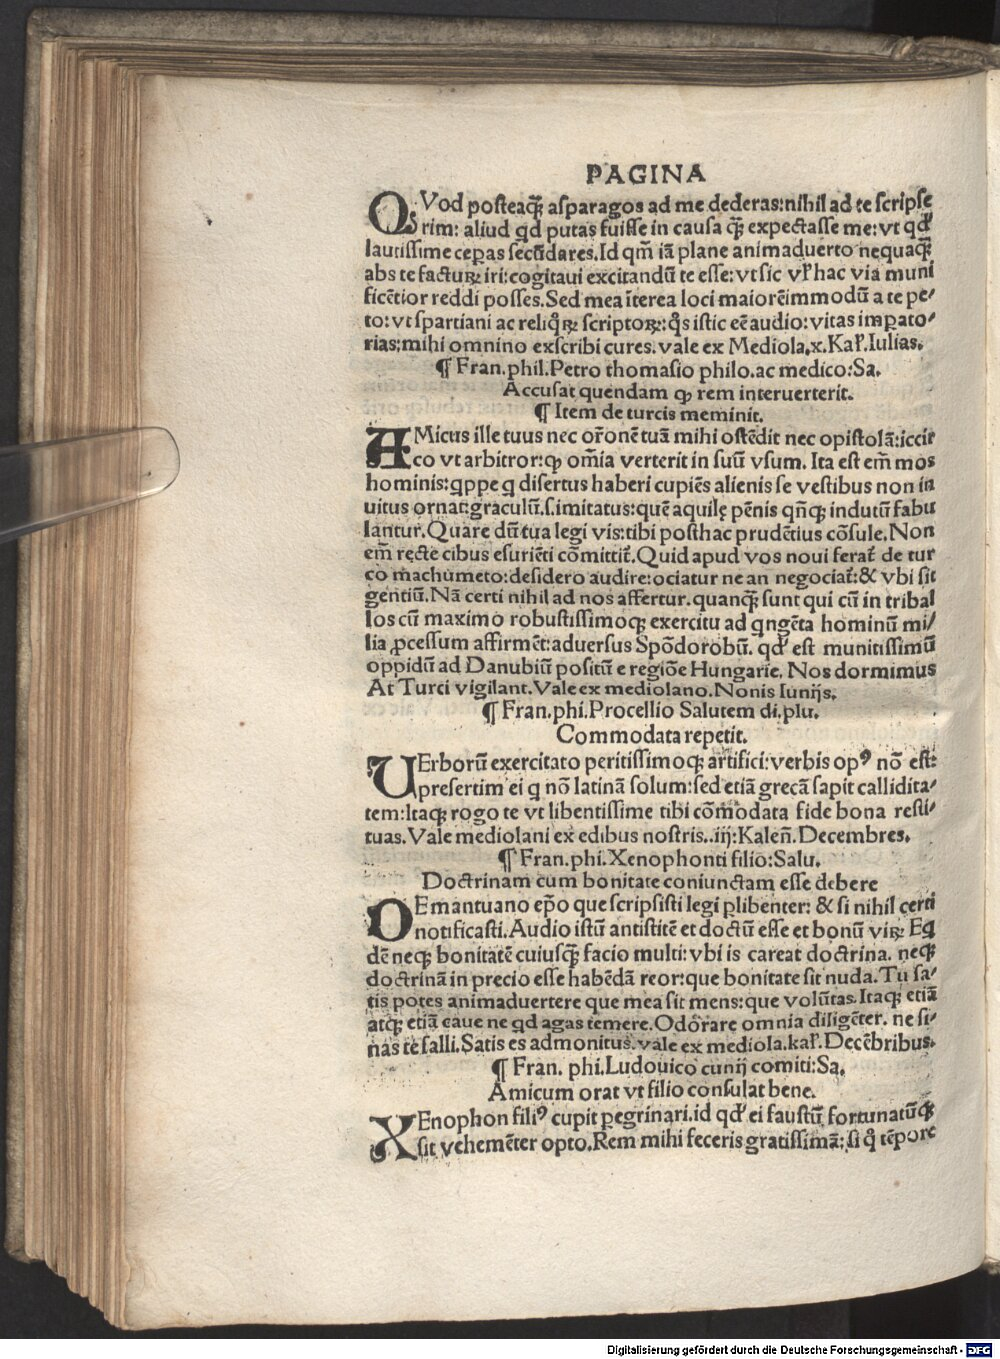 PAGINA
QVod posteaq̃ asparagos ad me dederas:nihil ad te scripse
rim: aliud qd putas fuisse in causa q̃ expectasse me: vt qđ
lautissime ceperas secũdares. Id qm̃ iã plane animaduerto nequaq̃
abs te factuꝝ iri: cogitaui excitandũ te esse: vt sic vl̓ hac via muni
ficẽtior reddi posses. Sed mea ĩterea loci maiorẽimmodũ a te pe/
to: vt spartiani ac reliq̃ꝝ scriptoꝝ: q̃s istic eẽ audio: vitas imperato/
rias: mihi omnino exscribi cures. vale ex Mediola.x. Kal̓. Iulias.
¶ Fran.phil. Petro thomasio philo. ac medico: Sa.
Accusat quendam ꝙ rem interuerterit.
¶ Item de turcis meminit.
AMicus ille tuus nec or̃onẽ tuã mihi ostẽdit nec opistolã: iccir
co vt arbitror: ꝙ om̃ia verterit in suũ vsum. Ita est em̃ mos
hominis: qppe q disertus haberi cupiẽs alienis se vestibus non in
uitus ornat: graculũ.s. imitatus: quẽ aquilę pẽnis qñq; indutũ fabu
lantur. Quare dũ tua legi vis: tibi posthac prudẽtius cõsule. Non
em̃ recte cibus esuriẽti cõmittit̃. Quid apud vos noui ferat̃ de tur
co machumeto: desidero audire: ociatur ne an negociat̃: & vbi sit
gentiũ. Nã certi nihil ad nos affertur. quanq̃ sunt qui cũ in tribal
los cũ maximo robustissimoq; exercitu ad qngẽta hominũ mi/
lia ꝓcessum affirmẽt: aduersus Spõdorobũ. qđ est munitissimũ
oppidũ ad Danubiũ positũ e regiõe Hungarie. Nos dormimus
At Turci vigilant. Vale ex mediolano. Nonis Iunijs.
¶ Fran.phi. Procellio Salutem di.plu.
Commodata repetit.
UErborũ exercitato peritissimoq; artifici: verbis opꝰ nõ est:
presertim ei q nõ latinã solum: sed etiã grecã sapit callidita/
tem: Itaq; rogo te vt libentissime tibi cõmodata fide bona resti/
tuas. Vale mediolani ex edibus nostris..iij: Kaleñ. Decembres.
¶ Fran.phi. Xenophonti filio: Salu.
Doctrinam cum bonitate coniunctam esse debere
OE mantuano ep̃o que scripsisti legi ꝑlibenter: & si nihil certi
notificasti. Audio istũ antistitẽ et doctũ esse et bonũ viꝝ Eq
dẽ neq; bonitatẽ cuiusq̃ facio multi: vbi is careat doctrina. neq;
doctrinã in precio esse habẽdã reor: que bonitate sit nuda. Tu sa/
tis potes animaduertere que mea sit mens: que volũtas. Itaq; etiã
atq; etiã caue ne qd agas temere. Odorare omnia diligẽter. ne si/
nas te falli. Satis es admonitus. vale ex mediola. kal̓. Decẽbribus.
¶ Fran. phi. Ludouico cunij comiti: Sa.
Amicum orat vt filio consulat bene.
XEnophon filiꝰ cupit ꝑegrinari. id qđ ei faustũ fortunatũq;
sit vehemẽter opto. Rem mihi feceris gratissimã: si q̃ tẽpore
Digitalisierung gefördert durch die Deutsche Forschungsgemeinschaft - DFG